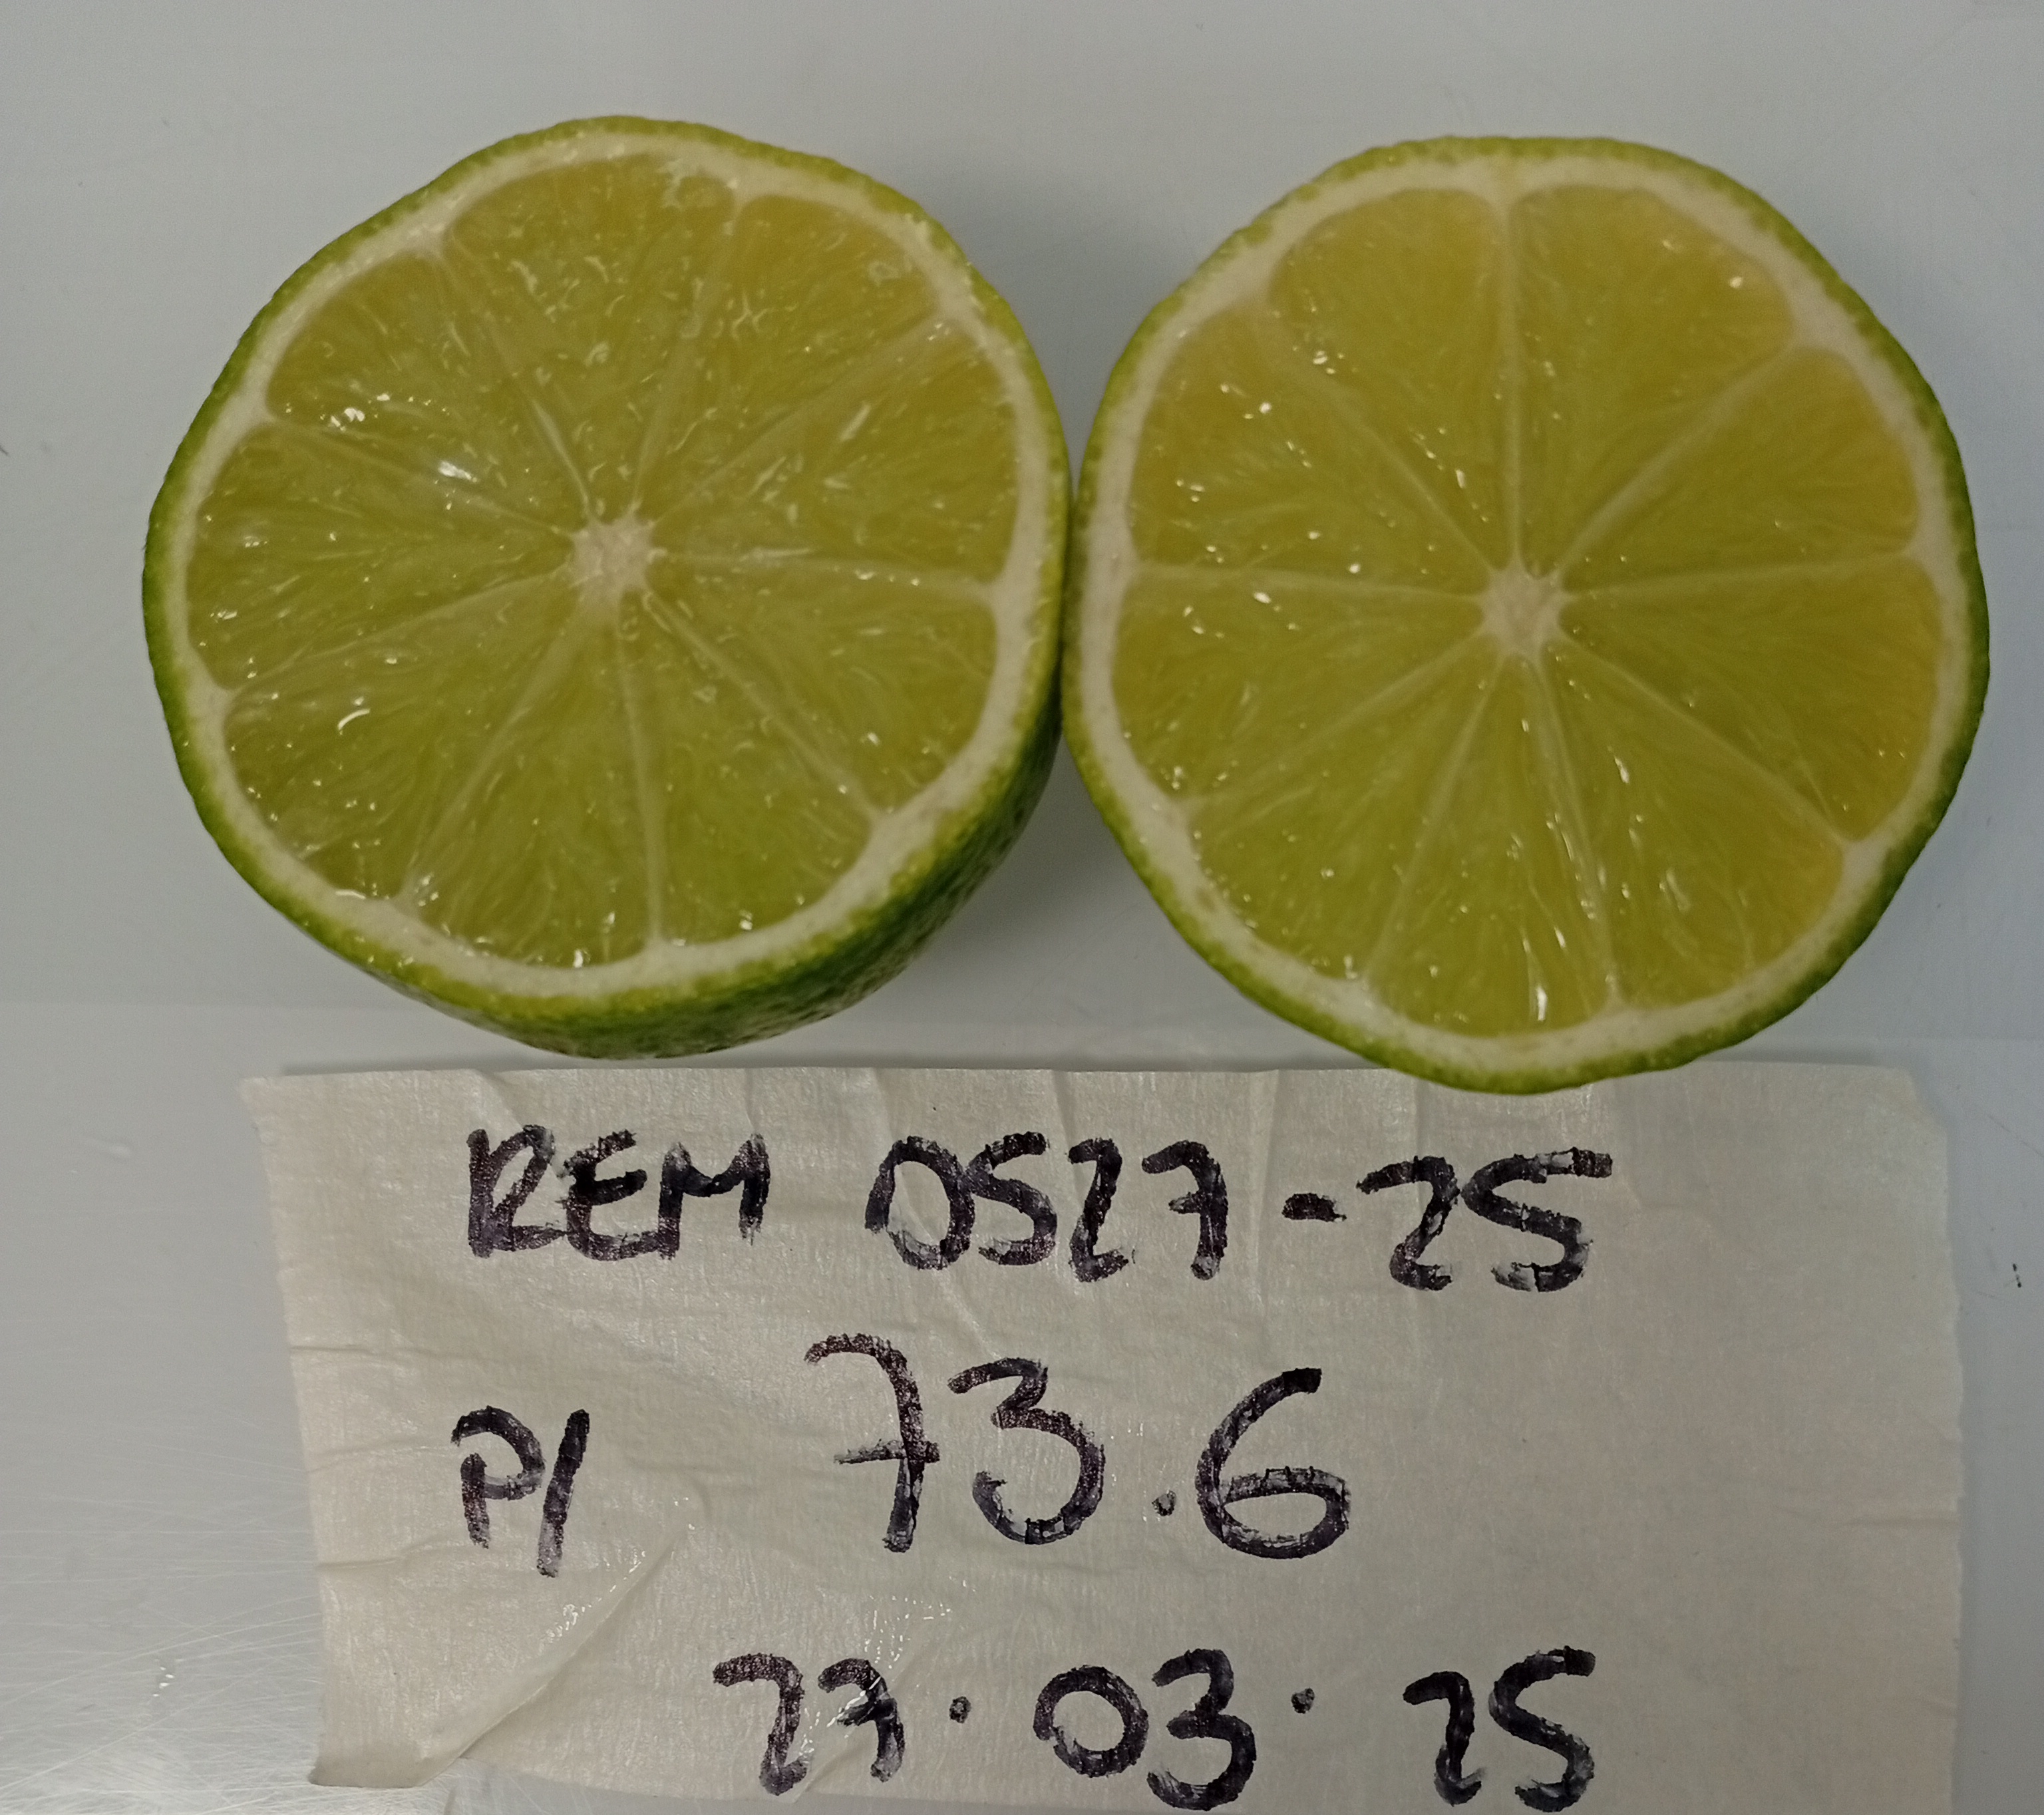 REM 0527-25
P/ 73.6
27.03.25